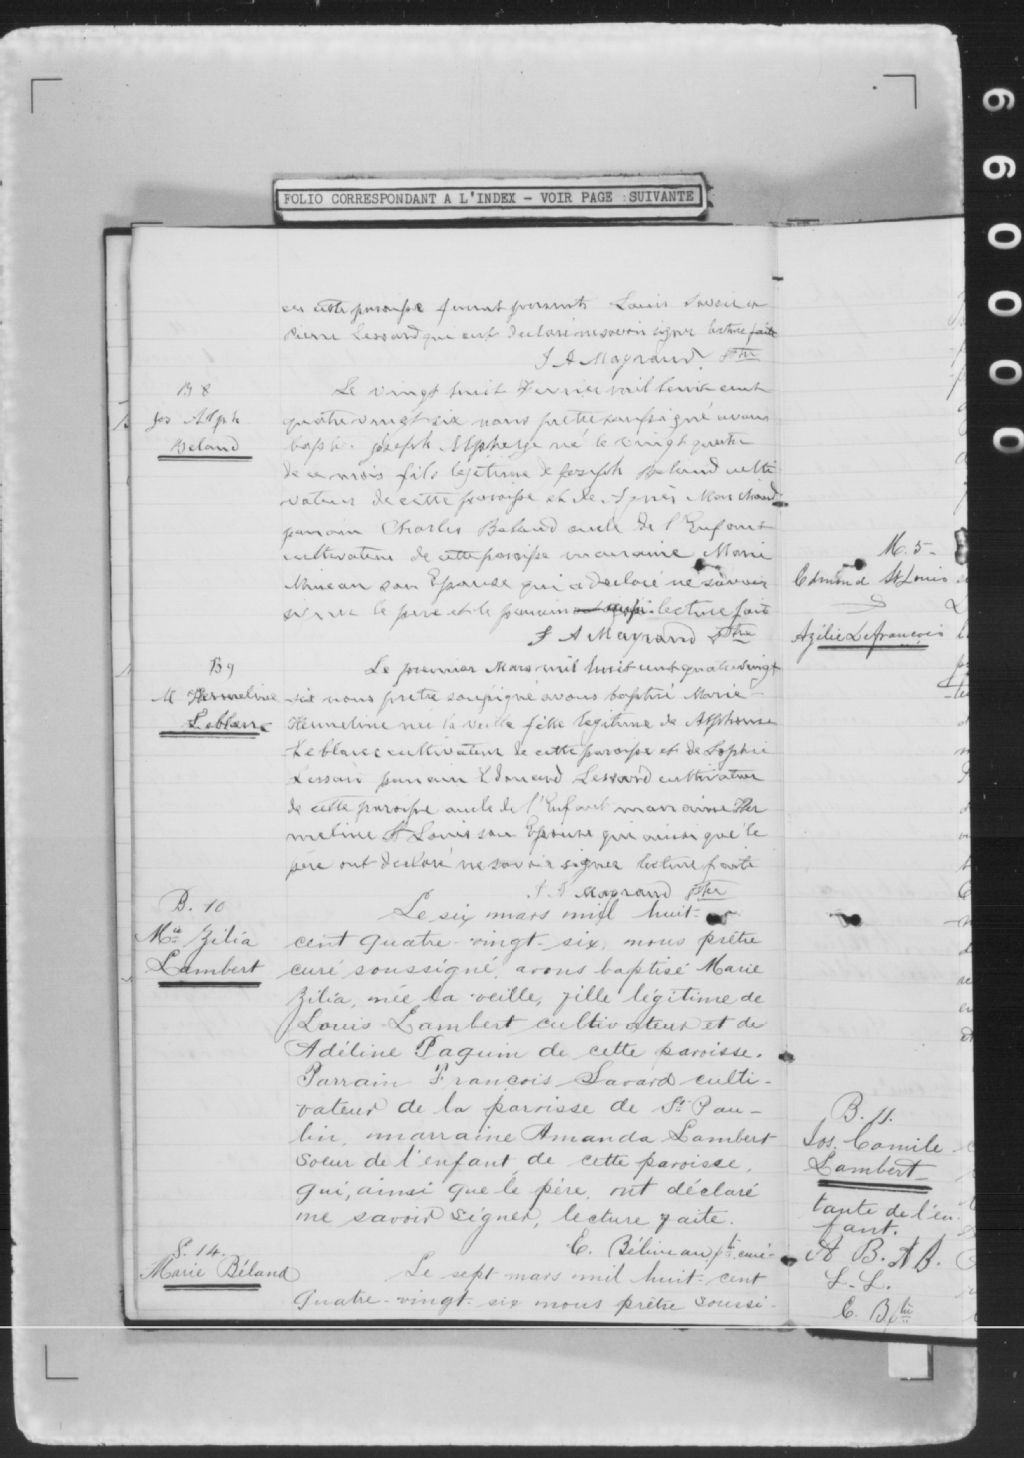 FOLIO CORRESPONDANT A L'INDEX - VOIR PAGE SUIVANTE
99000
en cette paroisse furent presents Louis Savoie et
Pierre Lessard qui ont declaré ne savoir signer lecture faite
J A Mayrand Ptre
B 8
Jos Alph
Beland
Le vingt huit Fevrier mil huit cent
quatre vingt six nous pretre soussigné avons
baptisé Joseph Alphege né le vingt quatre
de ce mois fils legitime de Joseph Beland culti
vateur de cette paroisse et de Agnès Marchand
parrain Charles Beland oncle de l'Enfant
cultivateur de cette paroisse marraine Marie
Mineau son Epouse qui a declaré ne savoir
signer le pere et le parrain lecture faite
J A Mayrand Ptre
B 9
M Hermeline
Leblanc
Le premier Mars mil huit cent quatre vingt
six nous pretre soussigné avons baptisé Marie
Hermeline née la veille fille legitime de Alphonse
Leblanc cultivateur de cette paroisse et de Sophie
Lessard parrain Edouard Lessard cultivateur
de cette paroisse oncle de l'Enfant marraine Her
meline St Louis son Epouse qui ainsi que le
père ont declaré ne savoir signer lecture faite
J A Mayrand Ptre
B. 10
Mie Zilia
Lambert
Le six mars mil huit-
cent quatre-vingt-six, nous prêtre
curé soussigné, avons baptisé Marie
Zilia, née la veille, fille légitime de
Louis Lambert cultivateur et de
Adéline Paquin de cette paroisse.
Parrain François Savard culti-
vateur de la paroisse de St Pau-
lin, marraine Amanda Lambert
soeur de l'enfant de cette paroisse,
qui, ainsi que le père, ont déclaré
ne savoir signer, lecture faite.
E. Béliveau ptre curé-
S. 14.
Marie Béland
Le sept mars mil huit-cent
quatre-vingt-six nous prêtre soussi-
M. 5-
Edmond St Louis
&
Azélie Lefrançois
B. 11.
Jos. Camile
Lambert
tante de l'en
fant.
A B. A B.
L. L.
E. B ptre